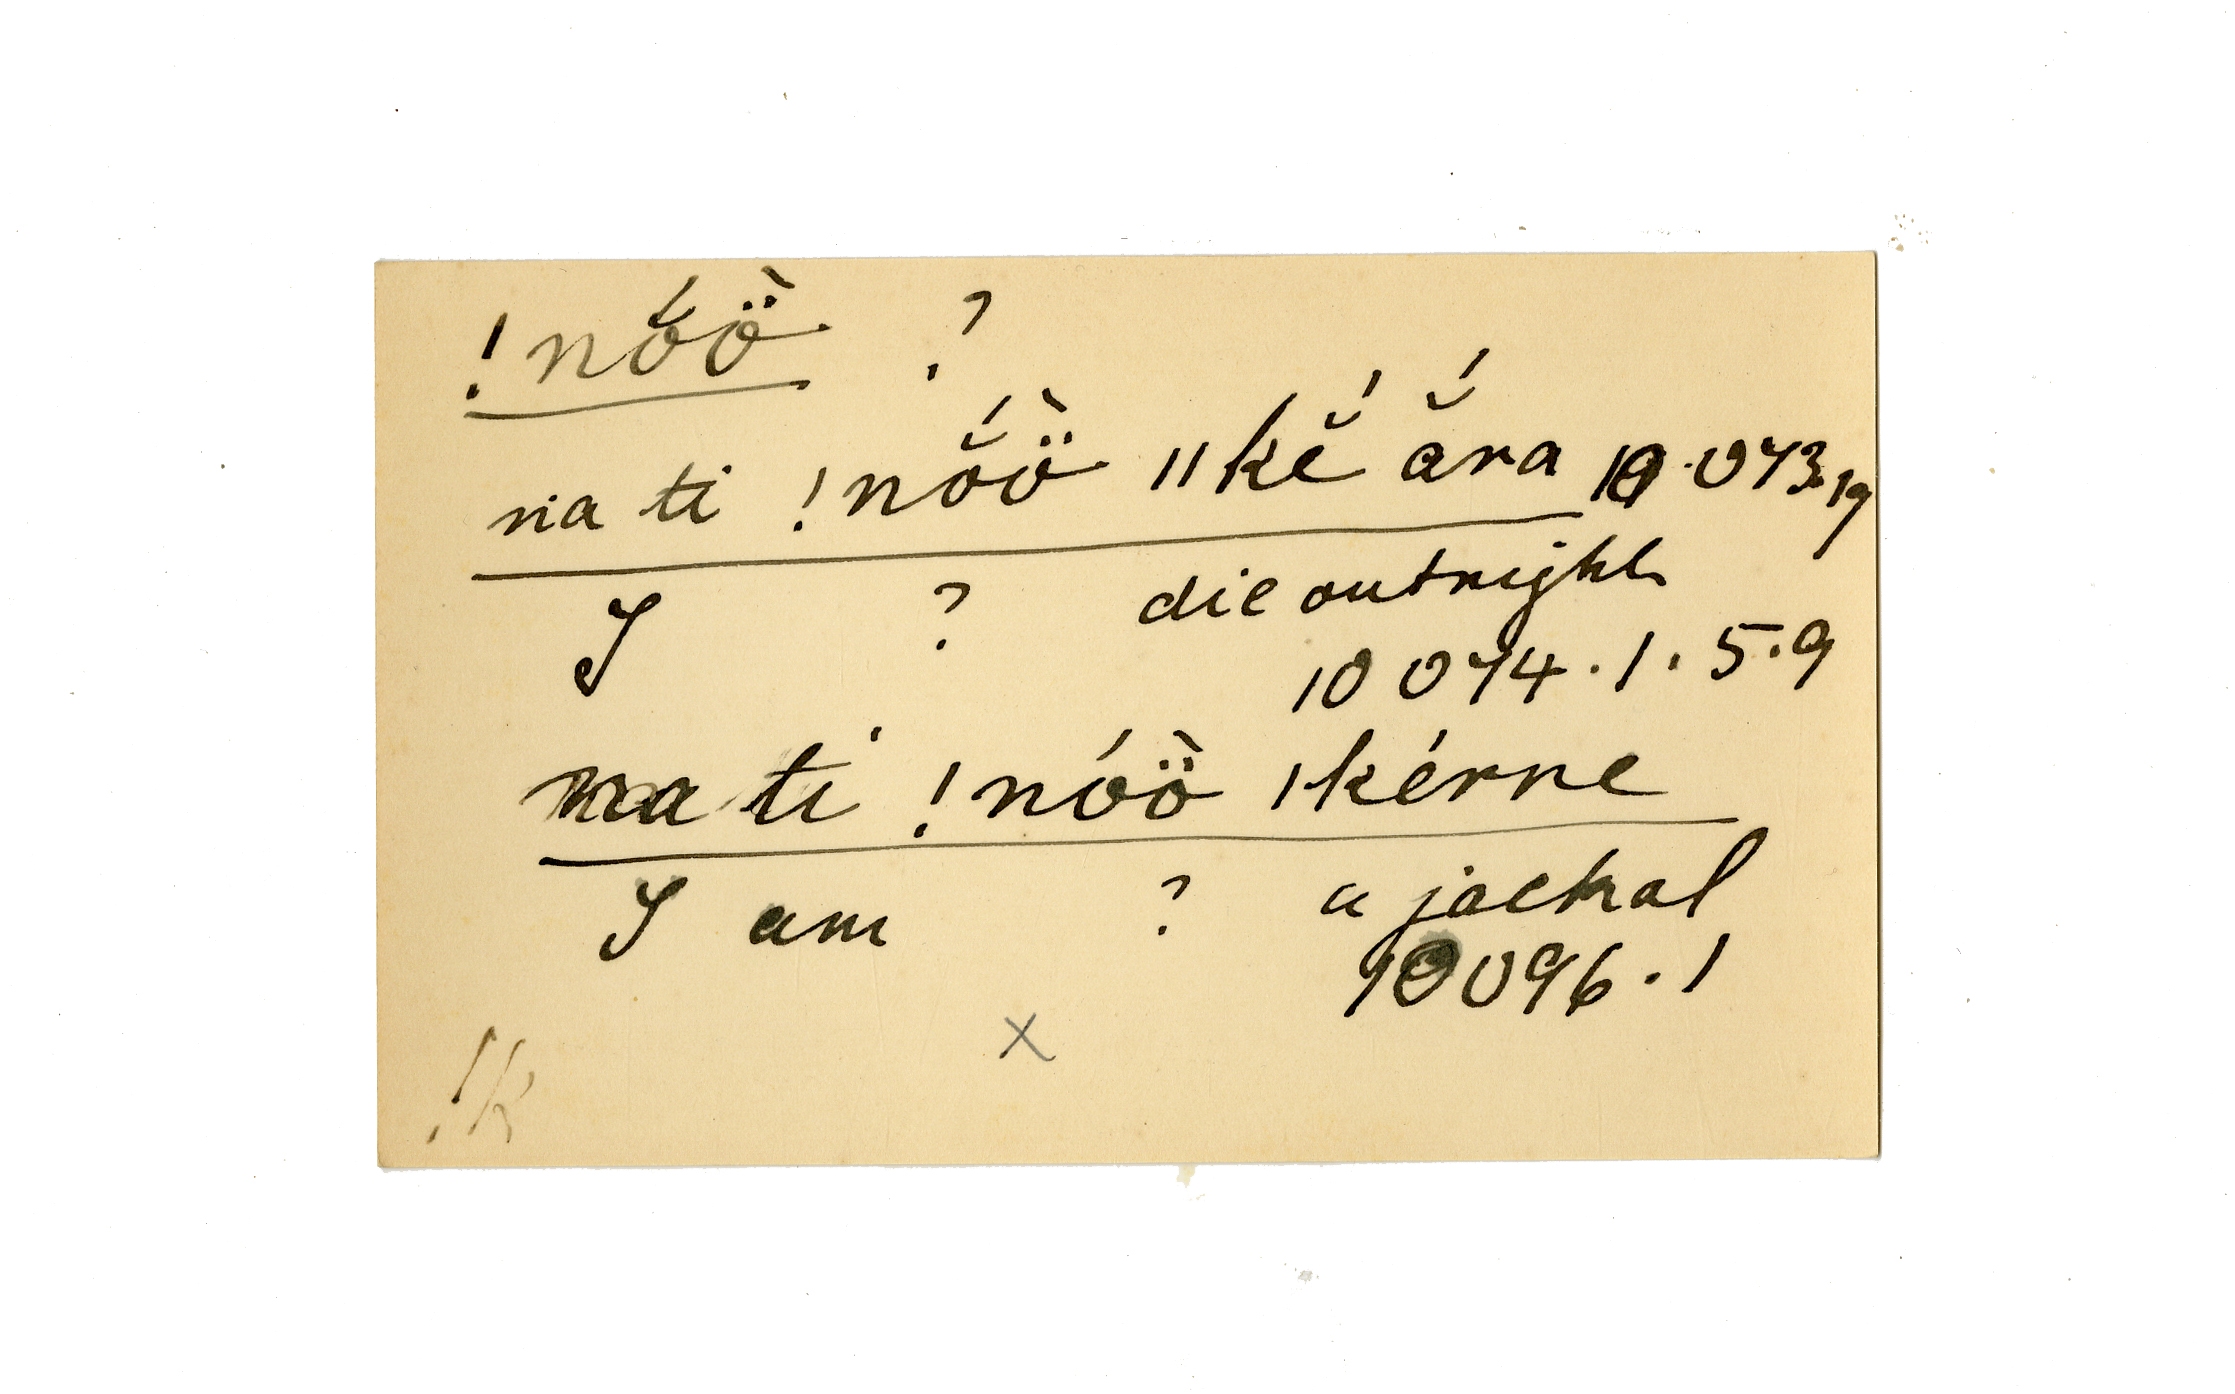 !nŏ́ö̀ ?
na ti !nŏ́ö̀ ||kĕ́ ắra 10.073.19
I ? die outright
10 074.1.5.9
na ti !nóö̀ |kérre
I am ? a jackal
10096.1
x
!k